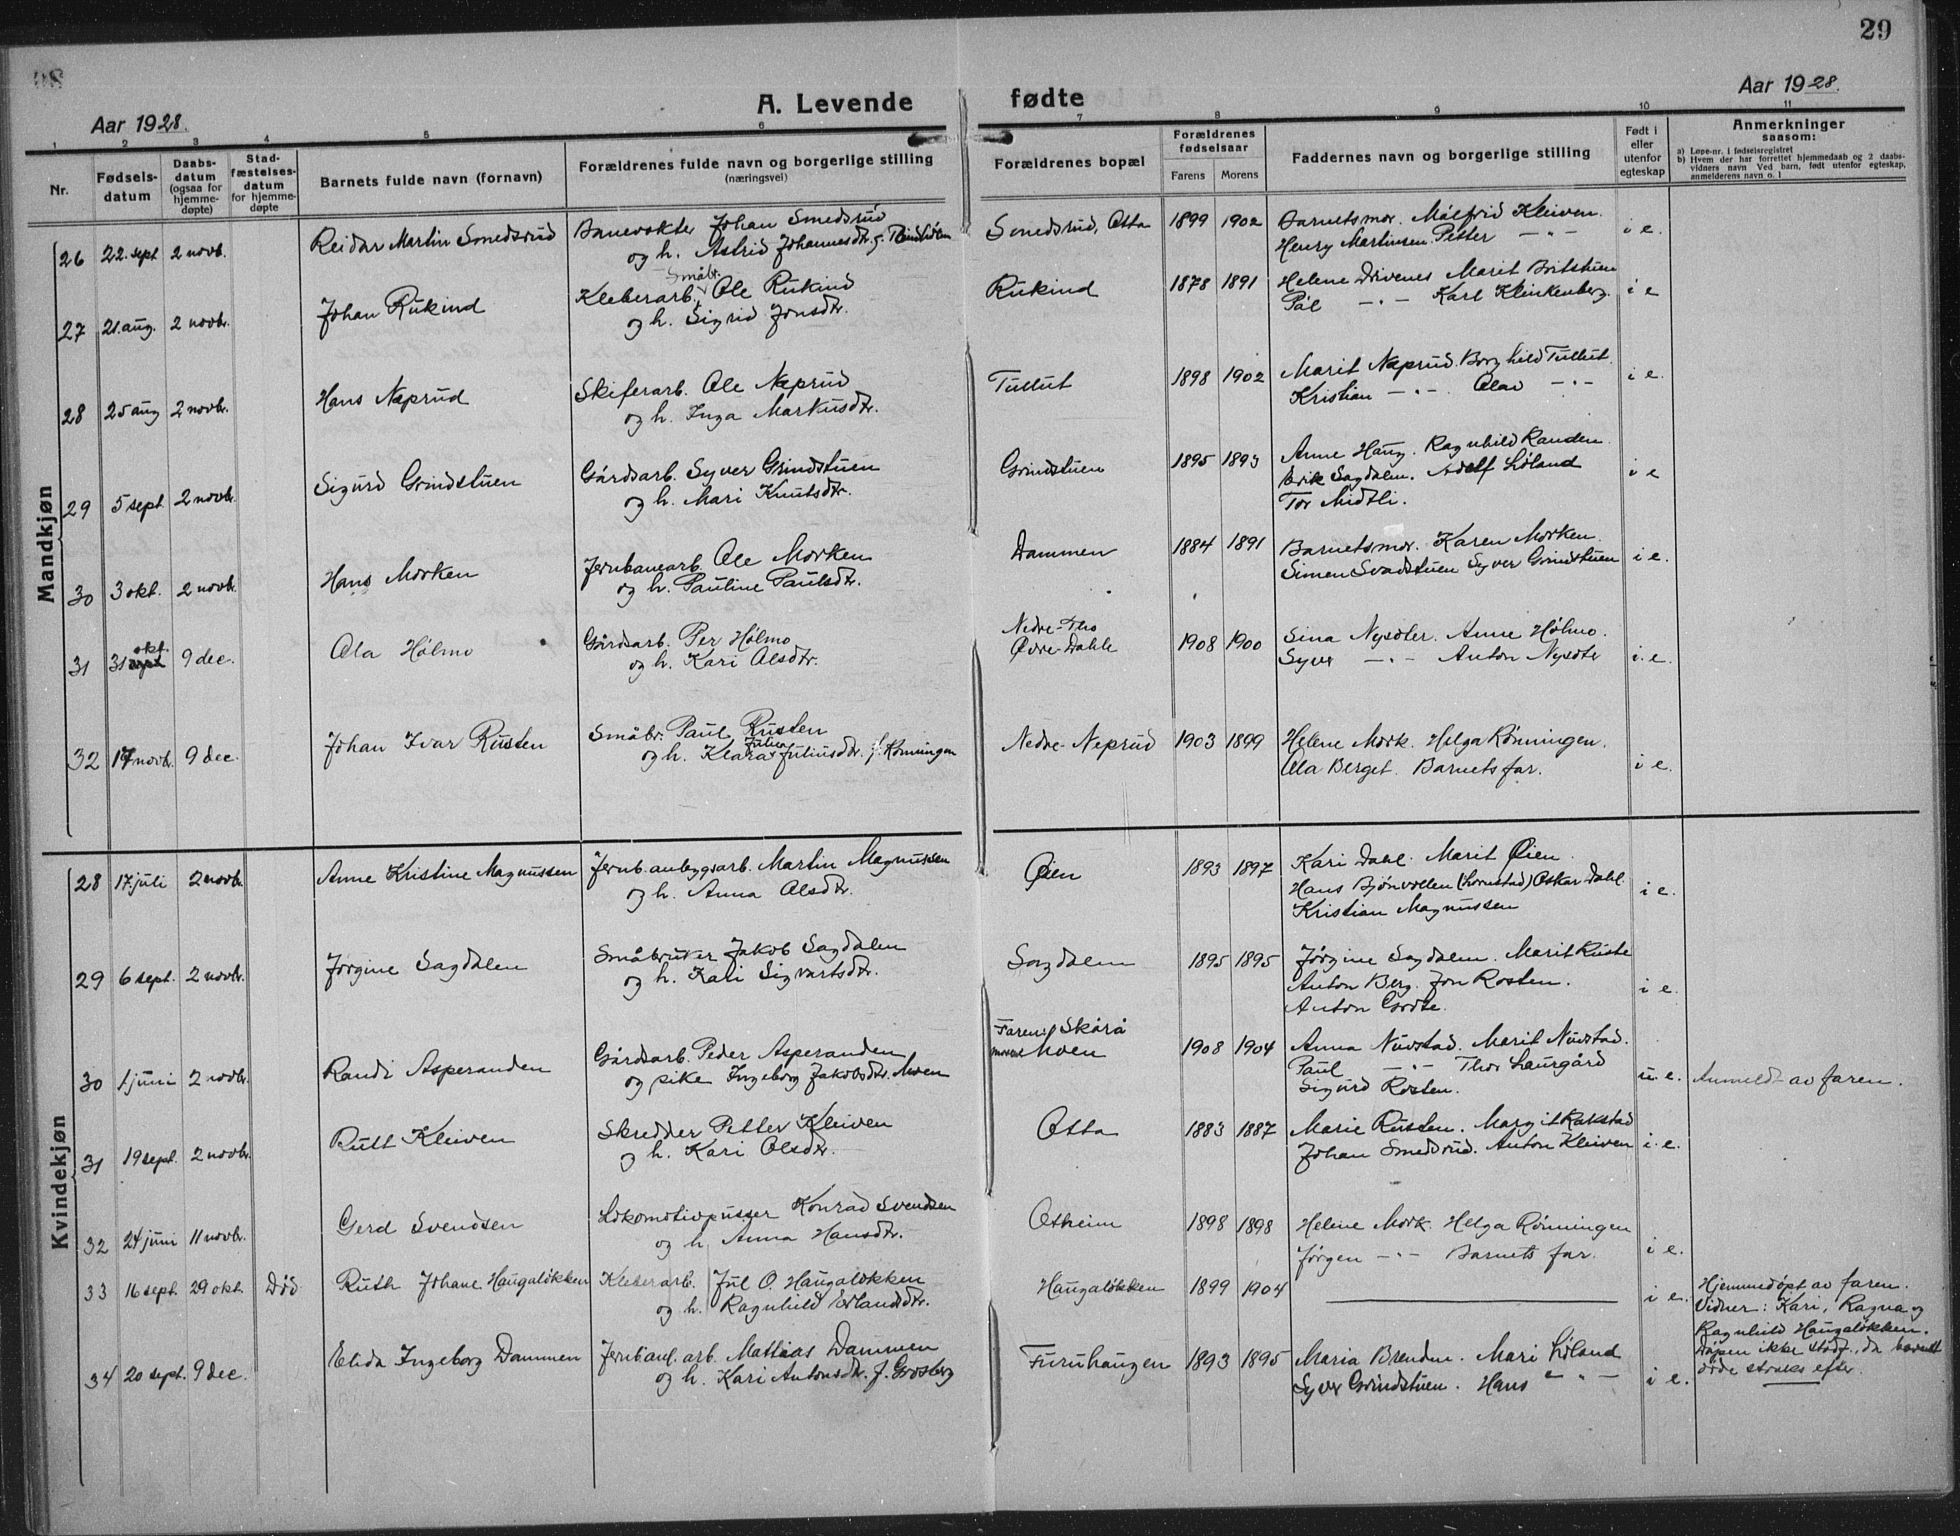 29
A. Levende fødte
Aar 1928.
Aar 1928.
1 2 3 4 5 6 7 8 9 10 11
Nr.
Fødsels-
datum
Daabs-
datum
(ogsaa for
hjemme-
døpte)
Stad-
fæstelses-
datum
for hjemme-
døpte
Barnets fulde navn (fornavn)
Forældrenes fulde navn og borgerlige stilling
(næringsvei)
Forældrenes bopæl
Forældrenes
fødselsaar
Farens Morens
Faddernes navn og borgerlige stilling
Født i
eller
utenfor
egteskap
Anmerkninger
saasom:
a) Løpe-nr. i fødselsregistret
b) Hvem der har forrettet hjemmedaab og 2 daabs-
vidners navn Ved barn, født utenfor egteskap,
anmelderens navn o. l
Mandkjøn
26 22. sept 2 novb. Reidar Martin Smedsrud Banevokter Johan Smedsrud Smedsrud, Otta 1899 1902 Barnetsmor. Målfrid Kleiven. i e.
og h. Astrid Johannesdtr. f. Henry Martinsen. Petter — " —
27 21. aug. 2 novbr. Johan Rukind Kleberarb. Småbr. Ole Rukind Rukind 1878 1891 Helene Divenes Marit Britstuen i e
og h. Sigrid Jonsdtr. Pål — " — Karl Klinkenberg.
28 25 aug 2 novbr. Hans Neprud Skiferarb. Ole Neprud Tullut 1898 1902 Marit Neprud. Borghild Tullut. i e.
og h. Inga Markusdtr. Kristian — " — Olav — " —
29 5 sept. 2 novbr. Sigurd Grindstuen Gårdsarb. Syver Grindstuen Grindstuen 1895 1893 Anne Haug. Ragnhild Randen. i e
og h. Mari Knutsdtr. Erik Sagdalen. Adolf Løland
Tor Midtli.
30 3 okt. 2 novbr. Hans Morken Jernbanearb. Ole Morken Dammen 1884 1891 Barnetsmor. Karen Morken. i e.
og h. Pauline Paulsdtr. Simen Svadstuen Syver Grindstuen
31 31 okt. 9 dec. Ola Hølmo Gårdsarb. Per Hølmo Nedre-Tho 1908 1900 Sina Nysæter. Anne Hølmo. i. e.
og h. Kari Olsdtr. Øvre-Dahle Syver — " — Anton Nysæter
32 17 novbr. 9 dec. Johan Ivar Rusten Småbr. Paul Rusten Nedre-Neprud 1903 1899 Helene Mork. Helga Rønningen. i e.
og h. Klara Julie Juliusdtr. f. Rønningen Ola Berget. Barnets far.
Kvindekjøn
28 17. juli 2 novbr. Anne Kristine Magnussen Jernb.anlegsarb. Martin Magnussen Øien 1893 1897 Kari Dahl. Marit Øien. i e.
og h. Anna Olsdtr. Hans Bjønvollen (Lornstad) Oskar Dahl.
Kristian Magnussen
29 6 sept. 2 novbr. Jørgine Sagdalen Småbruker Jakob Sagdalen Sagdalen 1895 1895 Jørgine Sagdalen. Marit Ruste i e.
og h. Kari Sigvartsdtr. Anton Berg. Jon Rosten.
Anton Grøte.
30 1. juni 2 novbr. Randi Asperanden Gårdsarb. Peder Asperanden Faren: Skårå 1908 1904 Anna Nustad. Marit Nustad. u. e. Anmeldt av faren.
og pike Ingeborg Jakobsdtr. Moen moren Moen Paul — " — Thor Laurgård
Sigurd Rosten.
31 19 sept. 2 novbr. Rutt Kleiven Skredder Petter Kleiven Otta 1883 1887 Marie Rusten. Margit Rakstad i e.
og h. Kari Olsdtr. Johan Smedsrud. Anton Kleiven
32 24 juni 11 novbr. Gerd Svendsen Lokomotivpusser Konrad Svendsen Otheim 1898 1898 Helene Mork. Helga Rønningen i e.
og h. Anna Hansdtr. Jørgen — " — Barnets far.
33 16 sept. 29 okt. Død Ruth Johane Haugaløkken Kleberarb. Jul O. Haugaløkken Haugaløkken 1899 1904 i e. Hjemmedøpt av faren.
og h. Ragnhild Erlandsdtr. Vidner: Kari, Ragna og
Ragnhild Haugaløkken.
Dåpen ikke stadf., da barnet
døde straks efter.
34 20 sept. 9 dec. Elida Ingeborg Dammen Jernbanearb. Mattias Dammen Furuhaugen 1893 1895 Maria Brenden. Mari Løland i e.
og h. Kari Antonsdtr. f. Grosberg Syver Grindstuen. Hans — " —